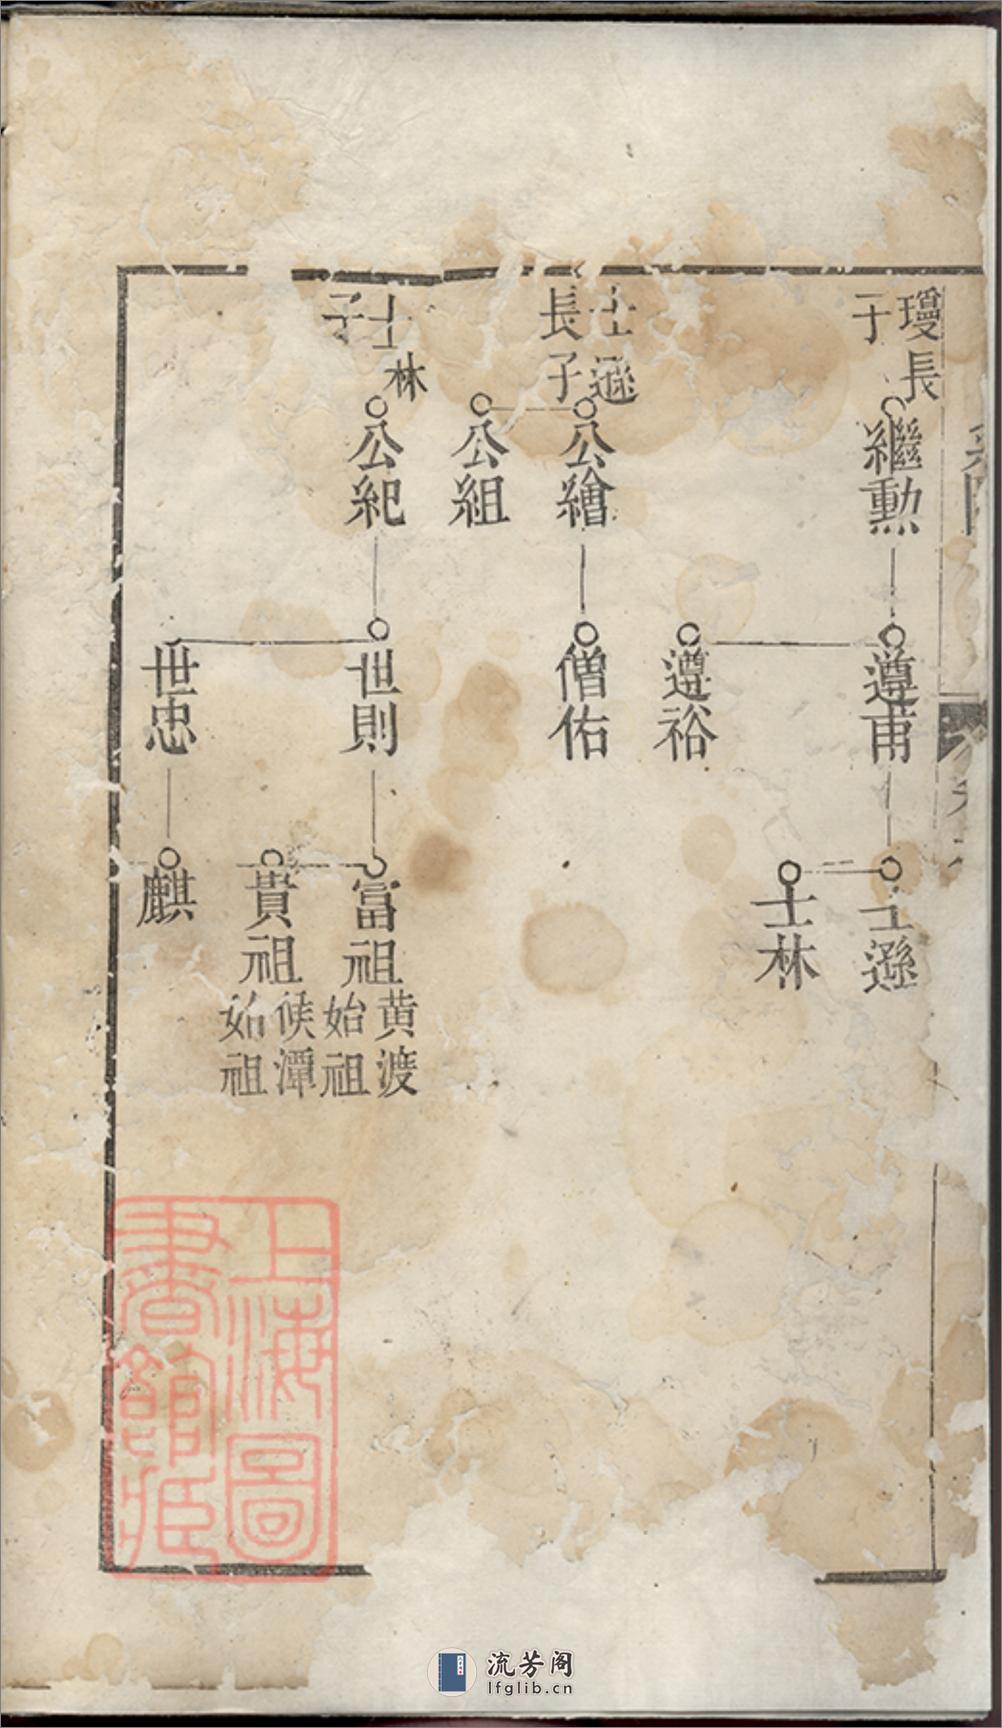 瓊長子
繼勳
遵甫
遵裕
士遜
士林
士遜長子
公繪
公組
僧佑
士林子
公紀
世則
世忠
富祖
黄渡始祖
貴祖
侯潭始祖
麒
上海圖
書館藏
流芳阁
lfglib.cn